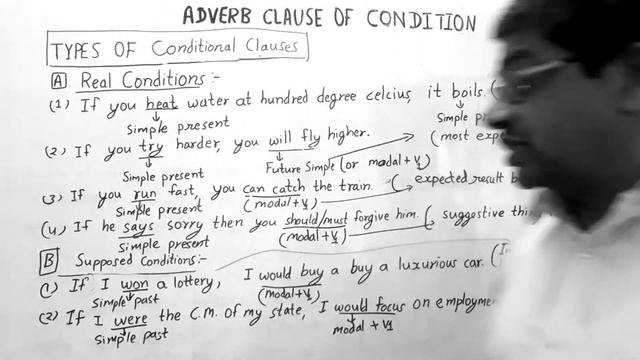 ADVERB CLAUSE OF CONDITION
TYPES OF Conditional Clauses
A Real Conditions :-
(1) If you heat water at hundred degree celcius, it boils. (
Simple present
Simple
(2) If you try harder, you will fly higher.
(most
Simple present
Future Simple (or modal + V1)
(3) If you run fast, you can catch the train. (expected result
Simple present
(modal+V1)
(4) If he says sorry then you should/must forgive him. ( suggestive
Simple present
(modal+V1)
B Supposed Conditions:-
(1) If I won a lottery, I would buy a buy a luxurious car. (
Simple past
(modal+V1)
(2) If I were the C.M. of my state, I would focus on
Simple past
modal + V1